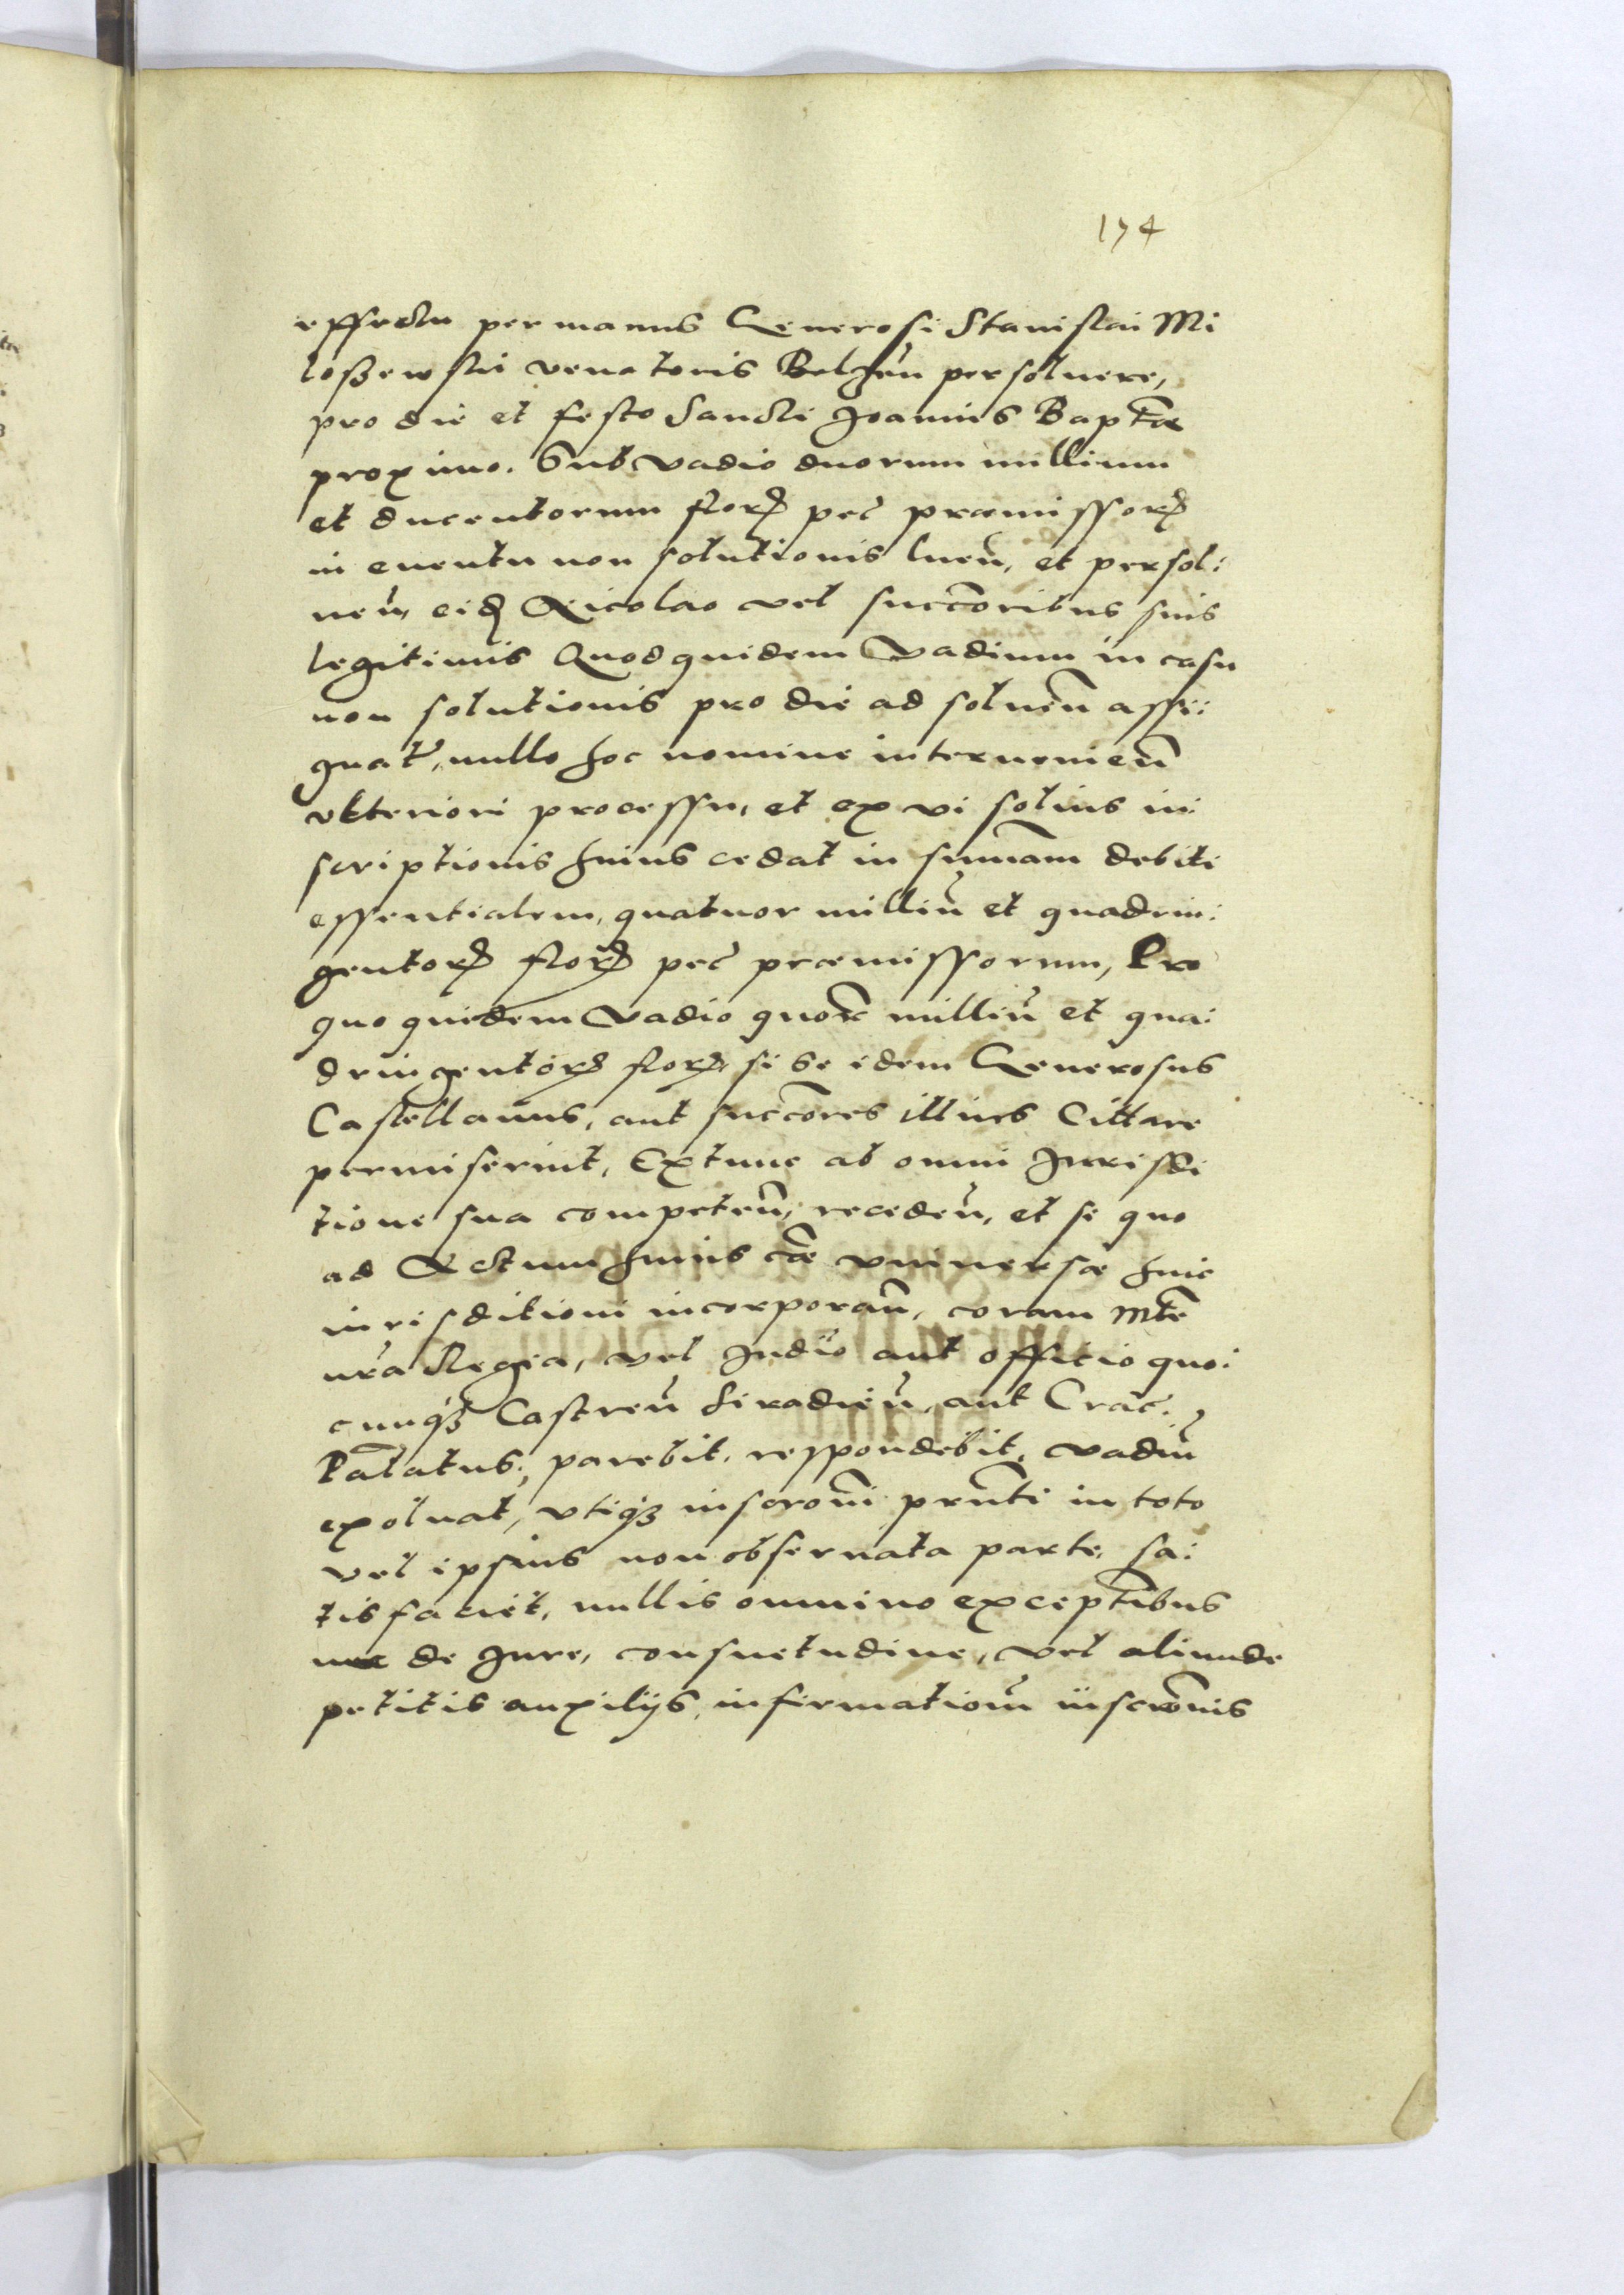 174
effectu per manus Generosi Stanislai Mi
loßewski venatoris Belzeñ persoluere,
pro die et festo Sancti Joannis Baptæ
proximo. Sub vadio duorum millium
et ducentorum florꝝ pec̃ præmissorꝝ
in euentu non solutionis lueñ, et persol:
ueñ, eidꝫ Nicolao vel succoribus suis
legitimis Quod quidem Vadium in casu
non solutionis pro die ad solueñ assi:
gnat̃, nullo hoc nomine interuenieñ
vlteriori processu, et ex vi solius in:
scriptionis huius cedat in summam debiti
essentialem, quatuor milliũ et quadrin:
gentorꝝ florꝝ pec̃ præmissorum, Pro
quo quidem Vadio quor̃ milliũ et qua:
dringentorꝝ florꝝ, si se idem Generosus
Castellanus, aut succores illius Cittare
permiserint, Extunc ab omni Jurisdi
tione sua competeñ, recedeñ, et se quo
ad Actum huius cæ̃ vniuersæ huic
iurisditioni incorporañ, coram Mte
ñra Regia, vel Judio aut officio quo:
cunqꝫ Castreñ Siradieñ, aut Crac̃.
Palatus, parebit, respondebit, vadiũ
exoluat, vtiqꝫ inscroni pr̃nti in toto
vel ipsius non obseruata parte, sa:
tisfaciet, nullis omnino exceptibus
nec de Jure, consuetudine, vel aliunde
petitis auxilijs, infirmationi inscronis